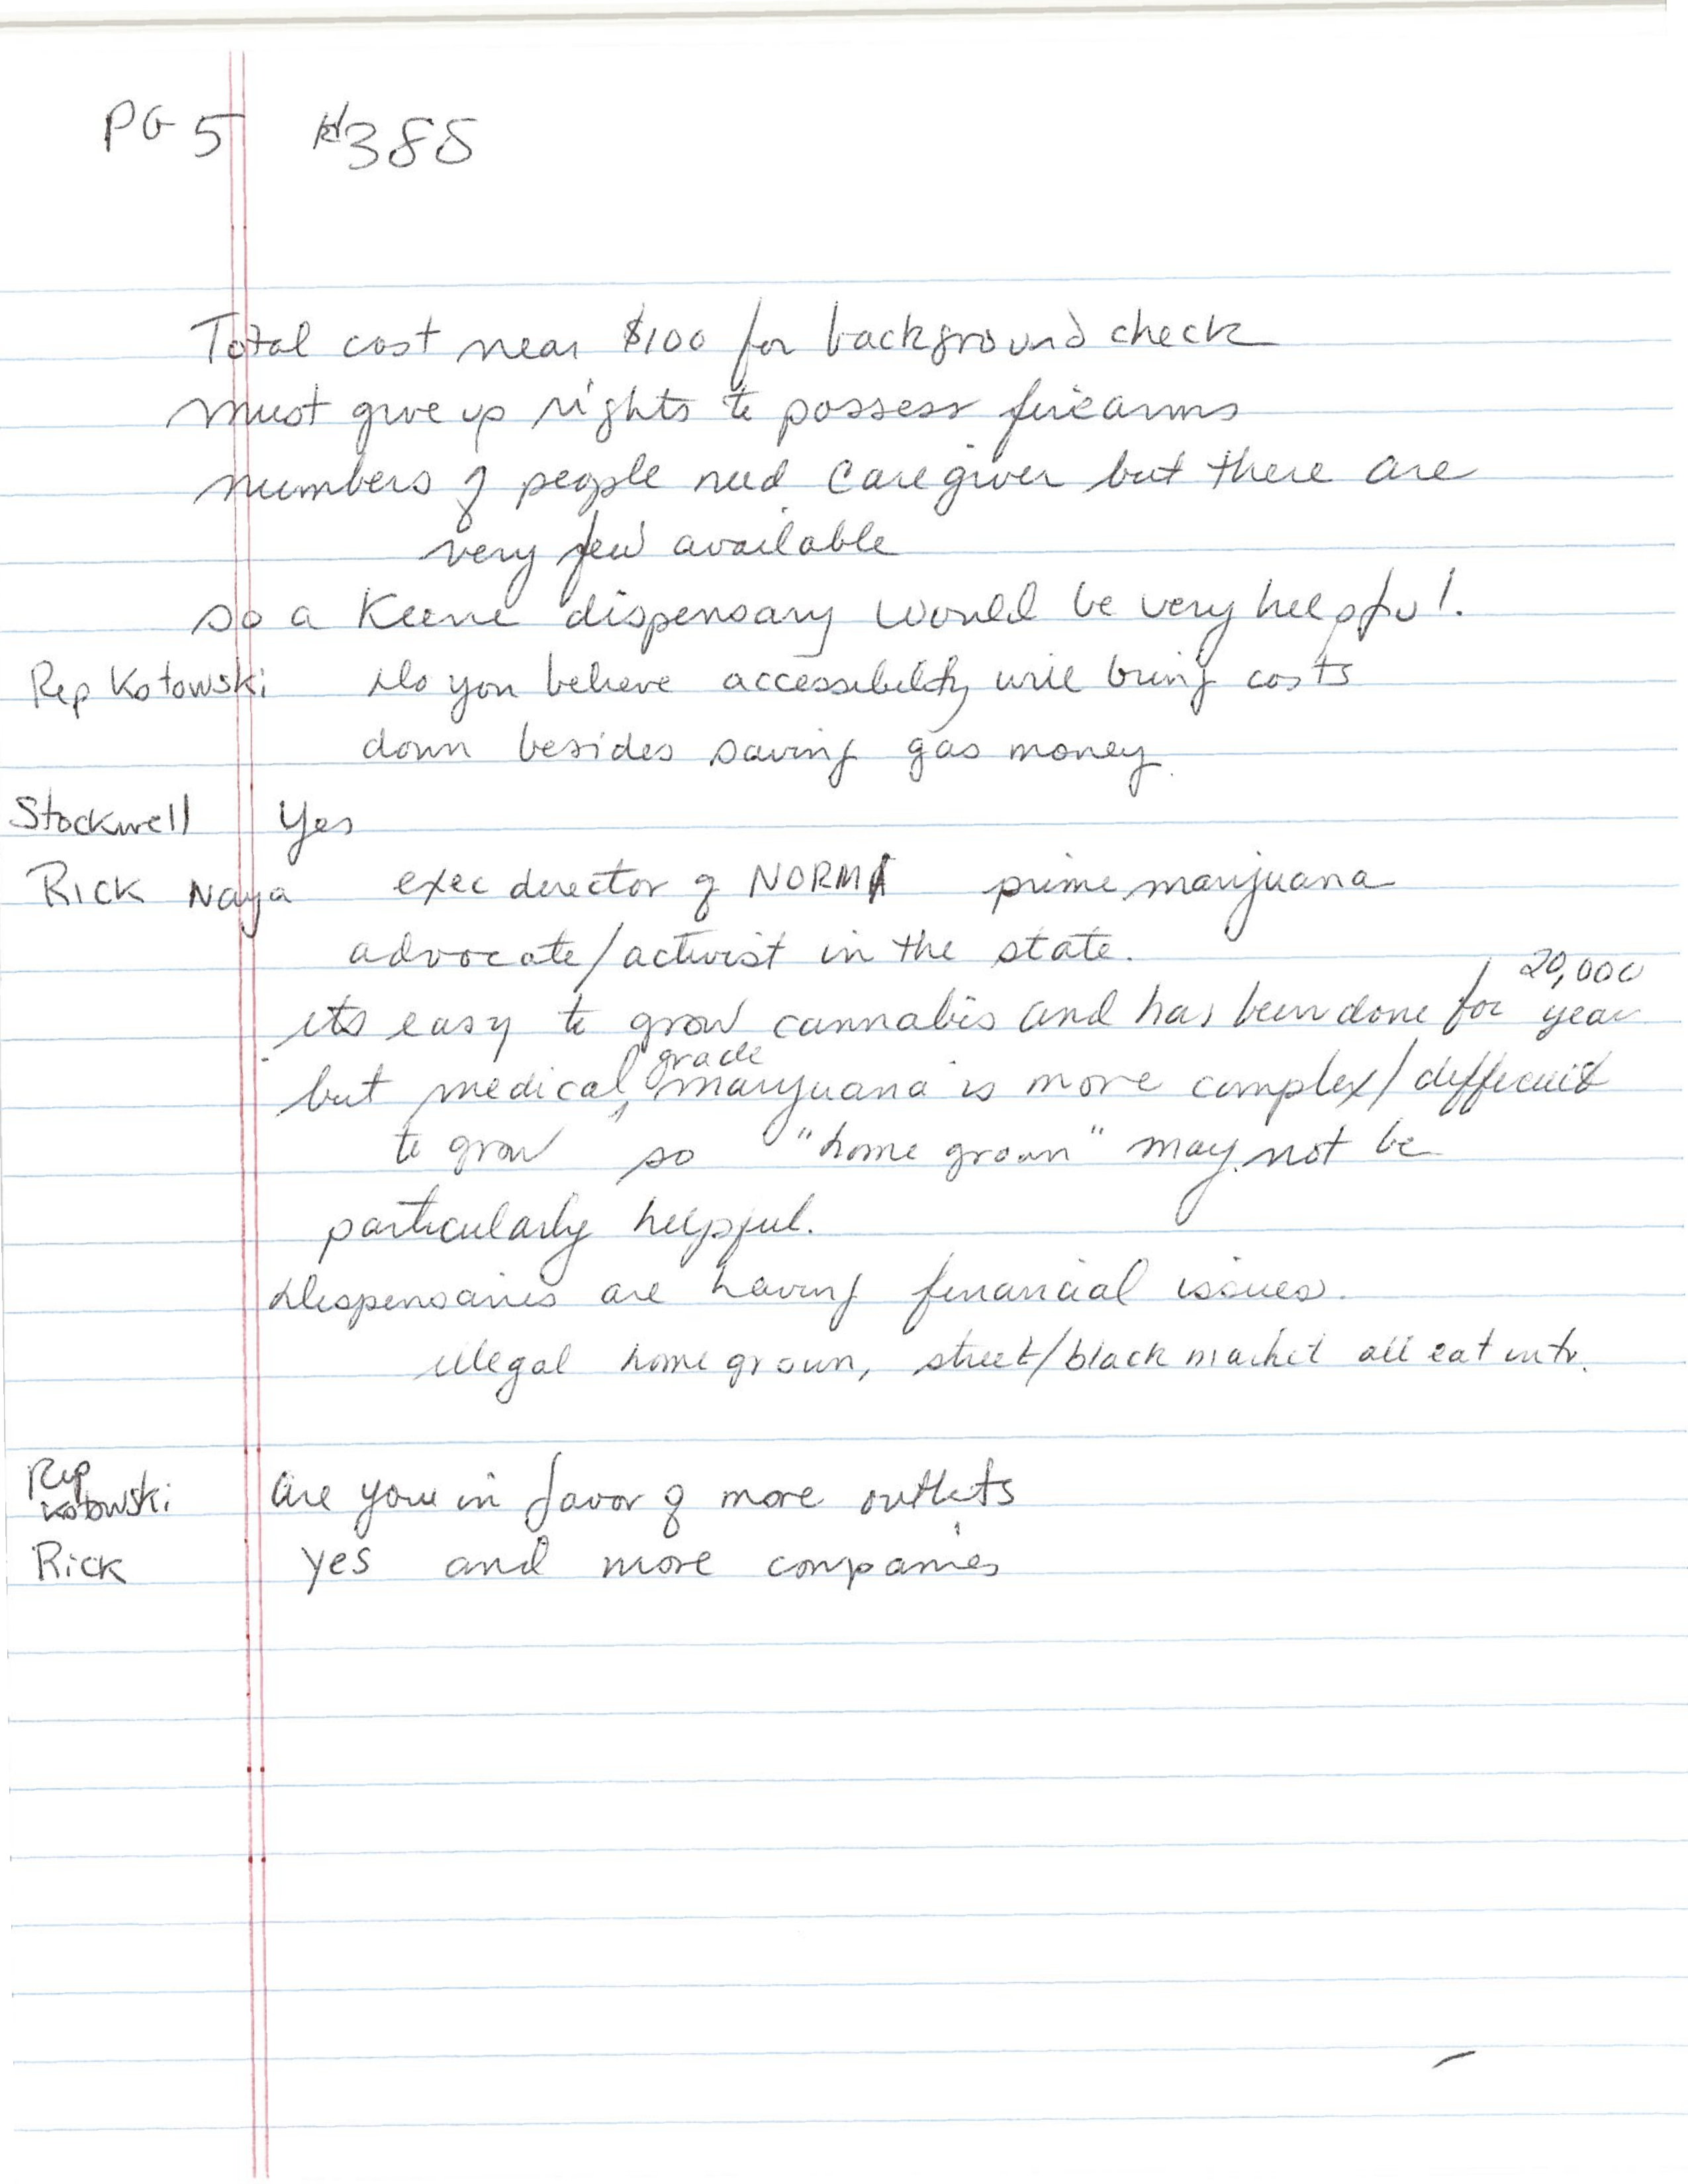 PG 5 #385
Total cost near $100 for background check
must give up rights to possess firearms
numbers of people need caregiver but there are
very few available
so a Keene dispensary would be very helpful.
Rep Kotowski Do you believe accessibility will bring costs
down besides saving gas money.
Stockwell Yes
Rick Naya exec director of NORML prime marijuana
advocate/activist in the state.
its easy to grow cannabis and has been done for 20,000 year
but medical grade marijuana is more complex/difficult
to grow so "home grown" may not be
particularly helpful.
Dispensaries are having financial issues.
illegal home grown, street/black market all eat into.
Rep Kotowski are you in favor of more outlets
Rick yes and more companies